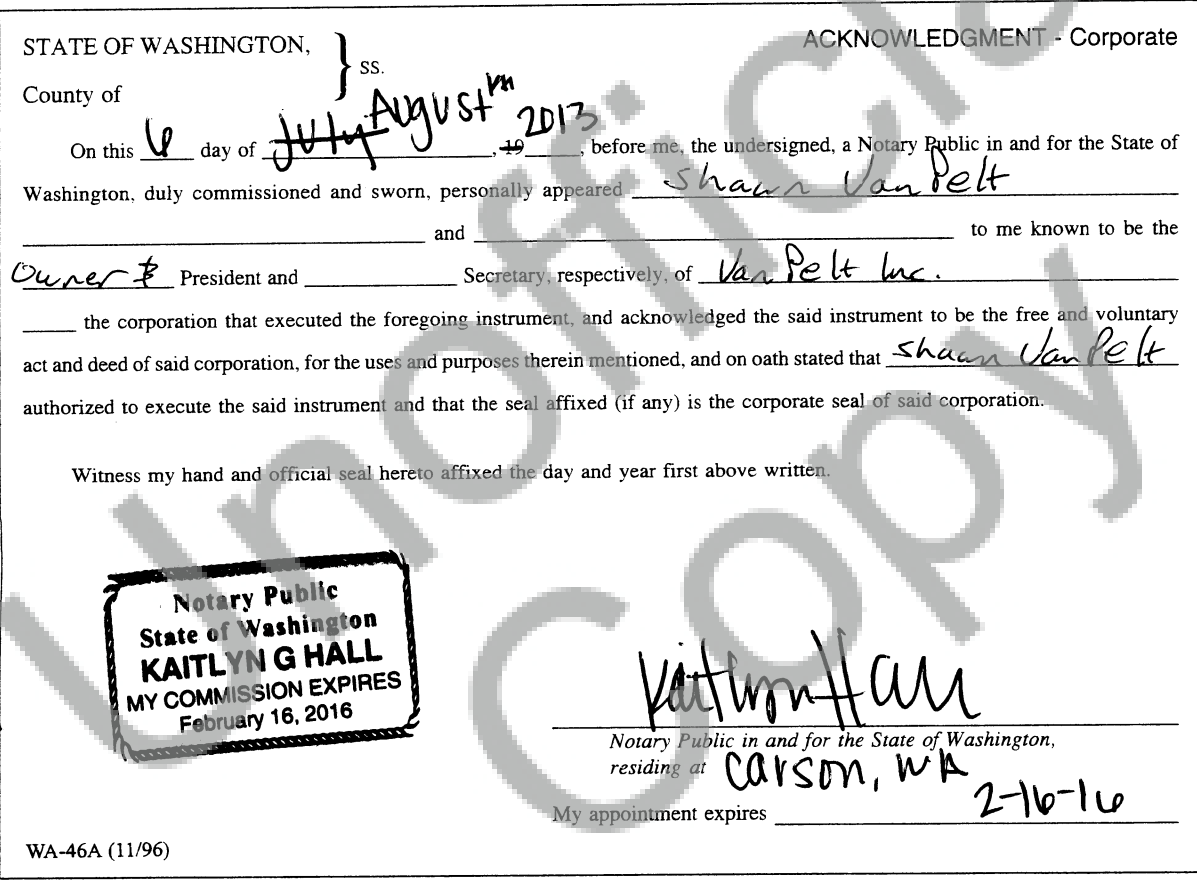 STATE OF WASHINGTON, } ss.
ACKNOWLEDGMENT - Corporate
County of
On this 6 day of July August, 19 2013, before me, the undersigned, a Notary Public in and for the State of
Washington, duly commissioned and sworn, personally appeared Shawn Van Pelt
and to me known to be the
Owner & President and Secretary, respectively, of Van Pelt Inc.
the corporation that executed the foregoing instrument, and acknowledged the said instrument to be the free and voluntary
act and deed of said corporation, for the uses and purposes therein mentioned, and on oath stated that Shawn Van Pelt
authorized to execute the said instrument and that the seal affixed (if any) is the corporate seal of said corporation.
Witness my hand and official seal hereto affixed the day and year first above written.
Notary Public
State of Washington
KAITLYN G HALL
MY COMMISSION EXPIRES
February 16, 2016
Kaitlyn Hall
Notary Public in and for the State of Washington,
residing at Carson, WA
My appointment expires 2-16-16
WA-46A (11/96)
Unoffic
Copy